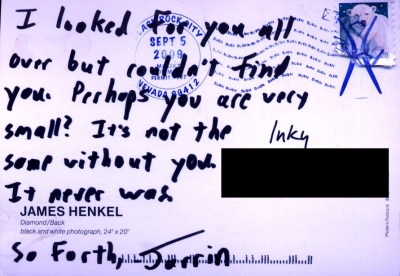 I looked for you all
over but couldn't find
you. Perhaps you are very
small? It's not the
same without you.
It never was.
So Forth, Jarrin
Inky
BLACK ROCK CITY
SEPT 5
2009
NEVADA 89412
JAMES HENKEL
Diamond/Back
black and white photograph, 24" x 20"